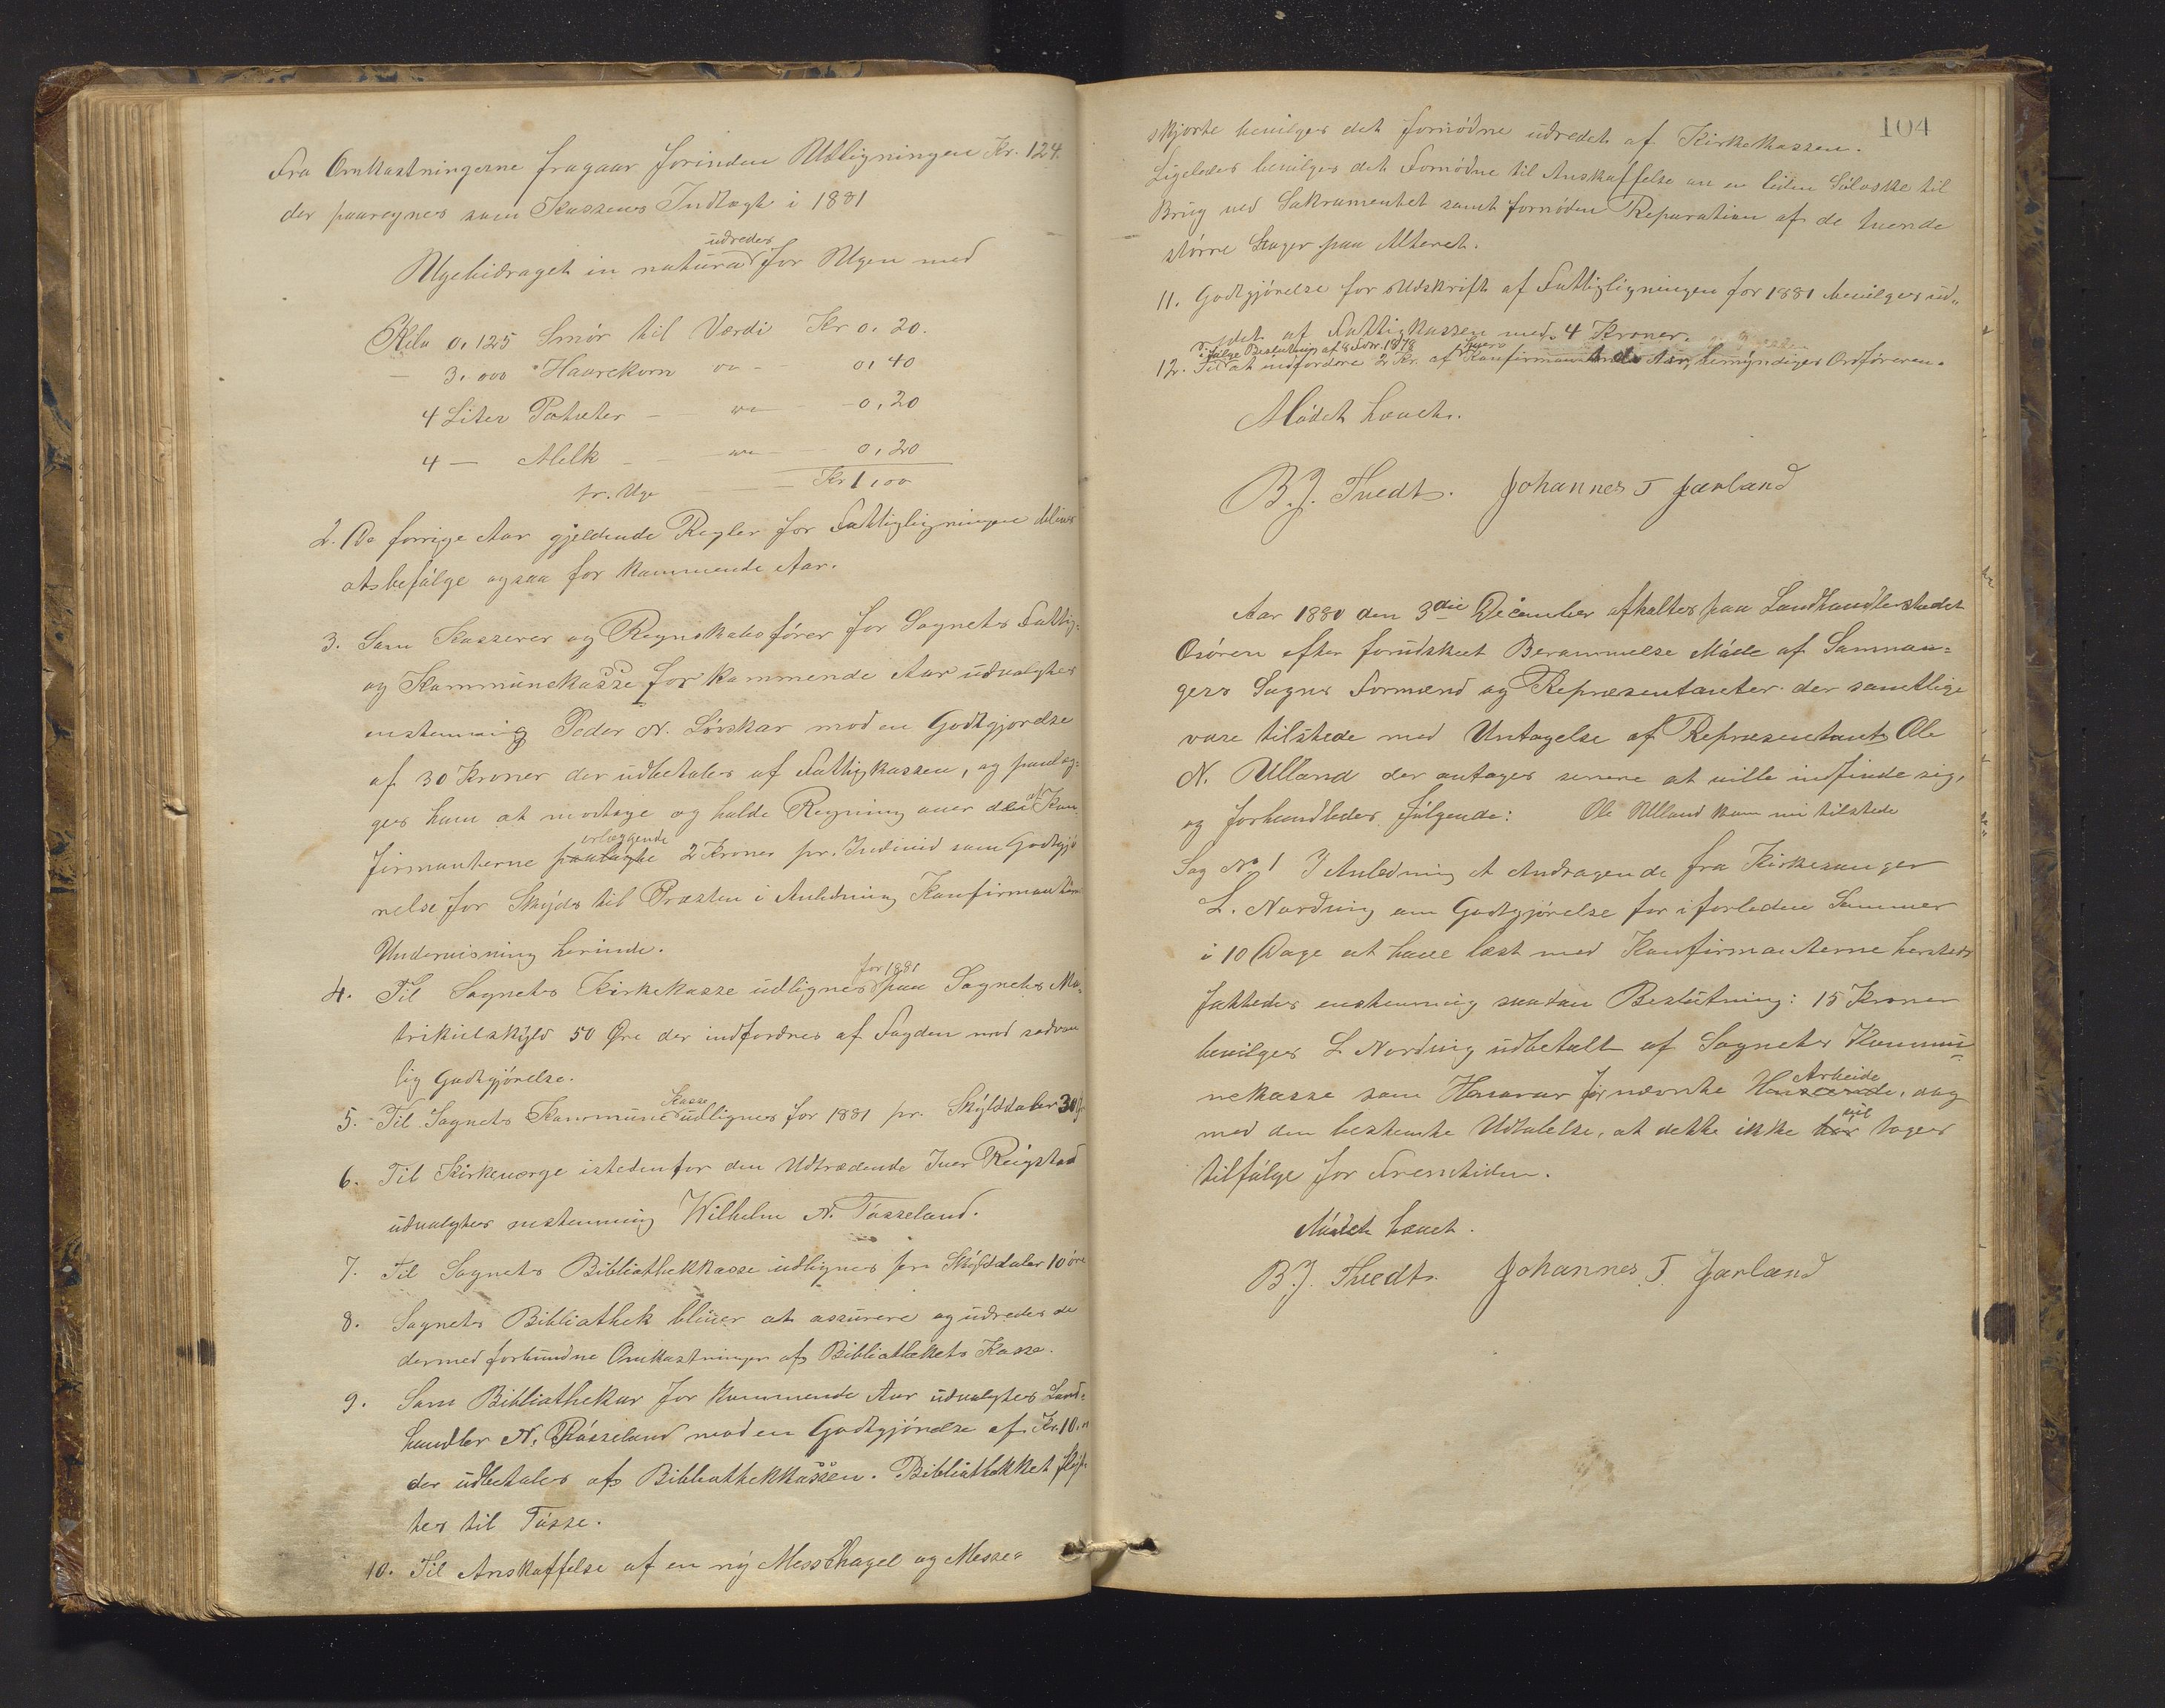 Fra Omkastningerne fragaar forinden Utligningen Kr. 124.
der paaregnes som Kassens Indtægt i 1881
udredes
Ugebidraget in natura for Ugen med
Kilo 0,125 Smör til Værdi Kr 0,20.
— 3,000 Havrekorn " - 0,40
4 Liter Poteter — " — 0,20
4 — Melk — " — 0,20
pr. Uge — Kr 1,00
2. De forrige Aar gjeldende Regler for Fattigligningen blive
at befölge ogsaa for kommende Aar.
3. Som Kasserer og Regnskabsförer for Sognets Fattig-
og Kommunekasse for kommende Aar udvalgtes
enstemmig Peder N. Lövskar mod en Godtgjörelse
af 30 Kroner der udbetales af Fattigkassen, og paalæg-
ges ham at modtage og holde Regning over den af Kon-
erlæggende
firmanterne paalagte 2 Kroner pr. Individ som Godtgjö-
relse for Skyds til Præsten i Anledning Konfirmant
Undervisning herinde.
for 1881
4. Til Sognets Kirkekasse udlignes paa Sognets Ma-
trikulskyld 50 Øre der indfordres af Fogden mod sædvan
lig Godtgjörelse.
Kasse
5. Til Sognets Kommune udlignes for 1881 pr. Skylddaler 30
6. Til Kirkeværge istedenfor den Udtrædende Iver Reigstad
udvalgtes enstemmig Wilhelm N. Tösseland.
7. Til Sognets Bibliothekkasse udlignes pr. Skylddaler 10 öre
8. Sognets Bibliothek bliver at assurere og udredes de
dermed forbundne Omkostninger af Bibliothekets Kasse.
9. Som Bibliothekar for kommende Aar udvalgtes Land-
handler N. Rösseland mod en Godtgjörelse af Kr. 10."
der udbetales af Bibliothekkassen. Bibliothekket flyt-
tes til Tösse.
10. Til Anskaffelse af en ny Messehagel og Messe-
104
skjorte bevilges det fornödne udredet af Kirkekassen.
Ligeledes bevilges det Fornödne til Anskaffelse av en liden Sölæske til
Brug ved Sakramentet samt fornöden Reparation af de tvende
större Stager paa Alteret.
11. Godtgjörelse for Udskrift af Fattigligningen for 1881 bevilges ud-
redet af Fattigkassen med 4 Kroner.
ifölge Beslutning af 8 Febr. 1878 hver
12. Til at indfordre 2 Kr. af Konfirmanterne bemyndiges Ordföreren.
Mödet hævet.
B. J. Tvedt. Johannes T Jarland
Aar 1880 den 3die December afholtes paa Landhandlerstedet
Osören efter forudskeet Berammelse Möde af Samnan-
gers Sogns Formænd og Repræsentanter der samtlige
vare tilstede med Untagelse af Repræsentant Ole
N. Ulland der antages senere at ville indfinde sig,
og forhandledes fölgende: Ole Ulland kom nu tilstede
Sag No 1 I Anledning et Andragende fra Kirkesanger
L. Nordvig om Godtgjörelse for i forleden Sommer
i 10 Dage at have læst med Konfirmanterne hersteds
fattedes enstemmig saadan Beslutning: 15 Kroner
bevilges L Nordvig udbetalt af Sognets Kommu-
Arbeide
nekasse som Honorar for nævnte , dog
vil
med den bestemte Udtalelse, at dette ikke bör tages
tilfölge for Fremtiden.
Mödet hævet.
B. J. Tvedt. Johannes T. Jarland